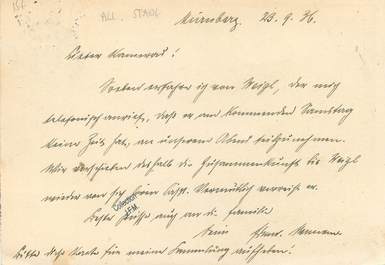 ALL. STADL
Nürnberg, 23. 9. 36.
Lieber Kamerad!
Soeben erfahre ich von Weigl, der mich
telefonisch anrief, daß er am kommenden Samstag
keine Zeit hat, an unserem Abend teilzunehmen.
Wir verschieben deshalb die Zusammenkunft bis Weigl
wieder von sich hören läßt. Vermutlich verreist er.
Beste Grüße auch an die Familie
Dein
Bitte diese Karte für meine Sammlung aufheben.
Collection
JFM